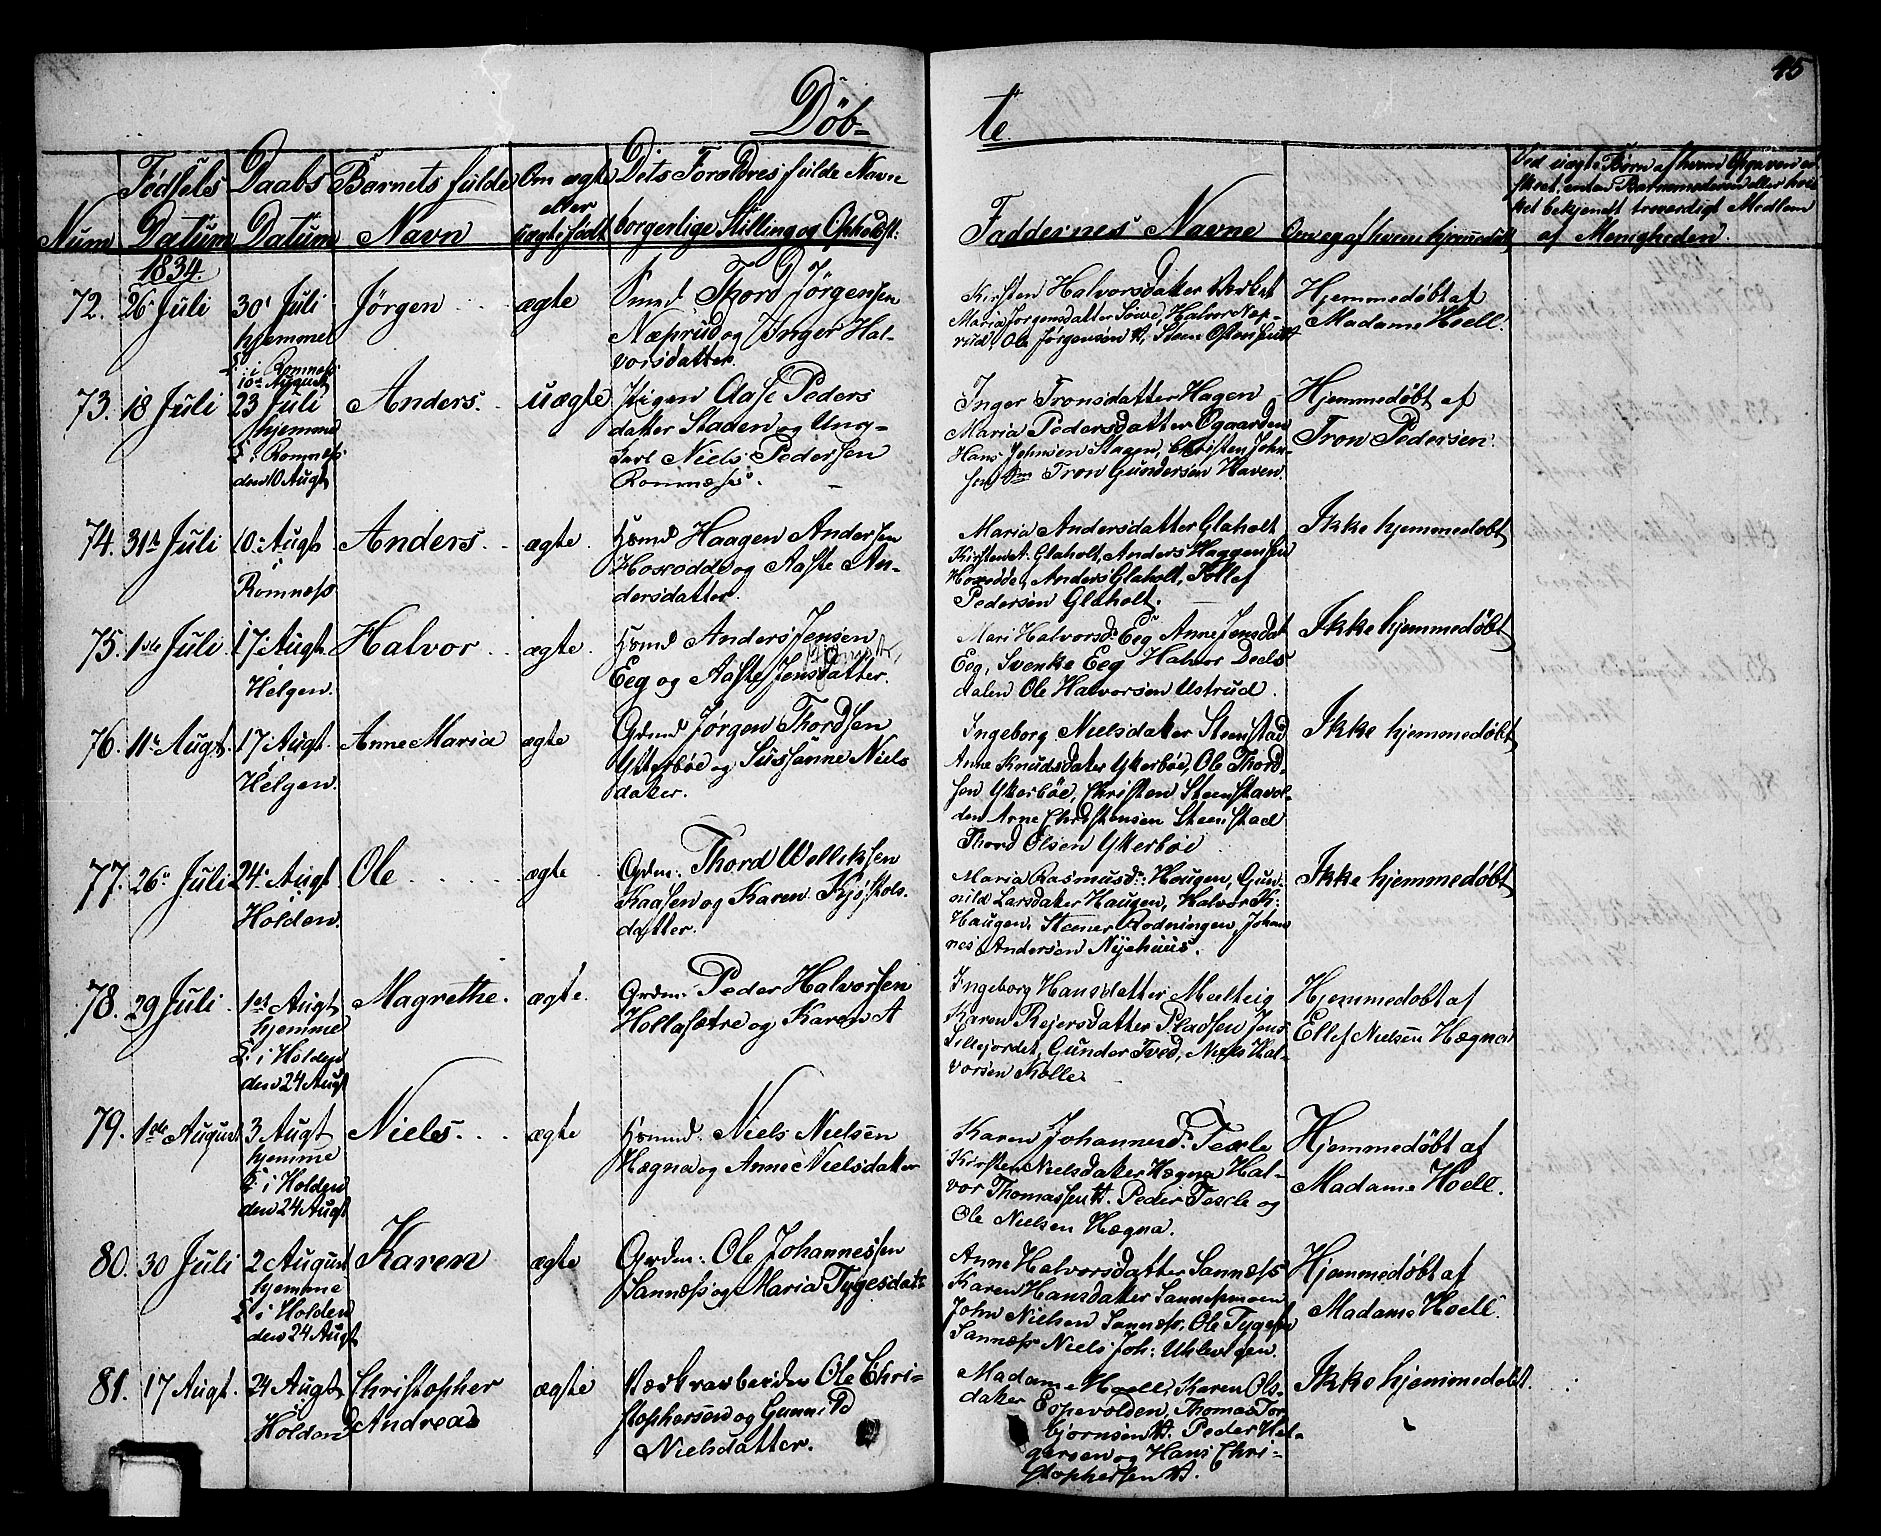 45
Döbte
Num
Födsels Datum
Daabs Datum
Barnets fulde Navn
Om ægte eller uægte födt
Dets Forældres fulde Navn
borgerlige Stilling og Opholdst:
Faddernes Navne
Om og af hvem hjemmedöbt
Ved uægte Børn af hvem Opgaven er
skeet, enten Barnemoderen eller hvil
ket bekjendt troværdigt Medlem
af Menigheden.
1834.
72. 26 Juli
30 Juli
hjemme
i Romness
10de August
Jørgen
ægte
Smed Tkord Jørgensen
Næprud og Inger Hal-
vorsdatter
Kirsten Halvorsdatter Verket
Maria Jörgensdatter Löwe, Halvor Næp-
rud, Ole Jørgensen
Hjemmedöbt af
Madame Hoell.
73. 18 Juli
23 Juli
hjemme
i Romness
den 10 Augt
Anders.
uægte.
Pigen Aase Peders
datter Staden og Ung-
karl Niels Pedersen
Romness.
Inger Tronsdatter Hagen
Maria Pedersdatter Ogaarden
Hans Johnsen Stagen, Christen John-
sen Tron Gundersen Haven.
Hjemmedöbt af
Tron Pedersen.
74. 31te Juli
10de Augt
i
Romness
Anders.
ægte.
Hsmd Haagen Andersen
Hoxodde og Aaste An-
dersdatter.
Maria Andersdatter Glaholt
Kirsten A. Glaholt, Anders Haagensen
Hoxodde, Anders Glaholt, Tollef
Pedersen Glaholt.
Ikke hjemmedöbt
75. 1ste Juli
17 Augt.
i
Helgen.
Halvor
ægte.
Hsmd Anders Jensen
Eeg og Aaste Jensdatter.
Mari Halvorsd: Eeg Anne Jensdat
Eeg, Svenke Eeg Halvor Deels
dalen Ole Halvorsen Ustrud.
Ikke hjemmedöbt
76. 11te Augt.
17 Augt.
i
Helgen.
Anne Maria
ægte
Grmd Jørgen Thordsen
Ytterböe og Sussanne Niels
datter.
Ingeborg Nielsdatter Steenstad
Anne Knudsdatter Ytterböe, Ole Thord-
sen Ytterböe, Christen Steenstavol-
den Arne Christensen Steenstad
Thord Olsen Ytterböe
Ikke hjemmedöbt
77. 26de Juli
24 Augt
i
Holden.
Ole
ægte
Grdm: Thord Welliksen
Kaasen og Karen Kjøstols-
datter.
Maria Rasmusd: Hougen, Gun-
nild Larsdatter Haugen, Halvor K:
Haugen, Steener Rodningen, Johan
nes Andersen Nyehuus.
Ikke hjemmedöbt
78. 29 Juli
1st Augt
hjemme
i Holden
den 24 Augt
Magrethe.
ægte.
Grdm: Peder Halvorsen
Hollasætre og Karen A
Ingeborg Hansdatter Melteig
Karen Rejersdatter Pladsen Jens
Lillejordet, Gunder Tved, Niels Hal-
vorsen Kolle.
Hjemmedöbt af
Ellef Nielsen Hægna
79. 1ste August
3 Augt
hjemme
i Holden
den 24 Augt
Niels.
ægte
Hsmd: Niels Nielsen
Hægna og Anne Nielsdatter
Karen Johannesd: Texle
Kirsten Nielsdatter Hægna Hal-
vor Thomassen. Peder Texle og
Ole Nielsen Hægna.
Hjemmedöbt af
Madame Hoell.
80. 30 Juli
2 August
hjemme
i Holden
den 24 Augt
Karen
ægte
Grdm: Ole Johannessen
Sannæss og Maria Tygesdatt
Anne Halvorsdatter Sannæss
Karen Hansdatter Sannesmoen
John Nielsen Sannæss, Ole Tygesen
Sannæss Niels Joh: Uhlevigen.
Hjemmedöbt af
Madame Hoell.
81. 17 Augt.
24 Augt
i
Holden
Christopher
Andreas
ægte
Værksarbeider Ole Chri-
stophersen og Gunnild
Nielsdatter.
Madame Hoell, Karen Ols-
datter Eopevolden, Thomas Tor
bjornsen. Peder Hel-
gersen og Hans Chri-
stophersen.
Ikke hjemmedöbt.